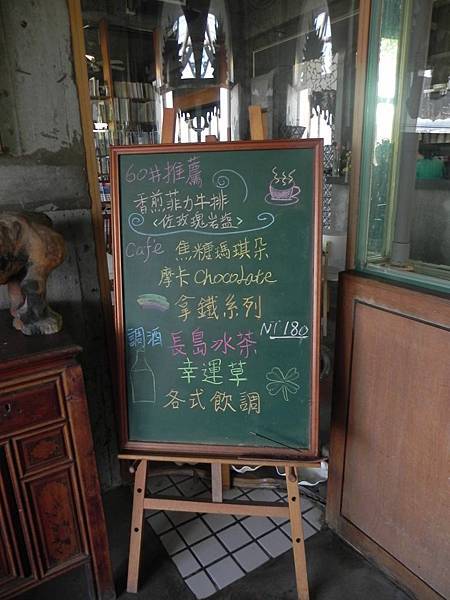 60井推薦
香煎菲力牛排
<佐玫瑰岩塩>
Cafe 焦糖瑪琪朵
摩卡 Chocolate
拿鐵系列
NT180
調酒 長島冰茶
幸運草
各式飲調